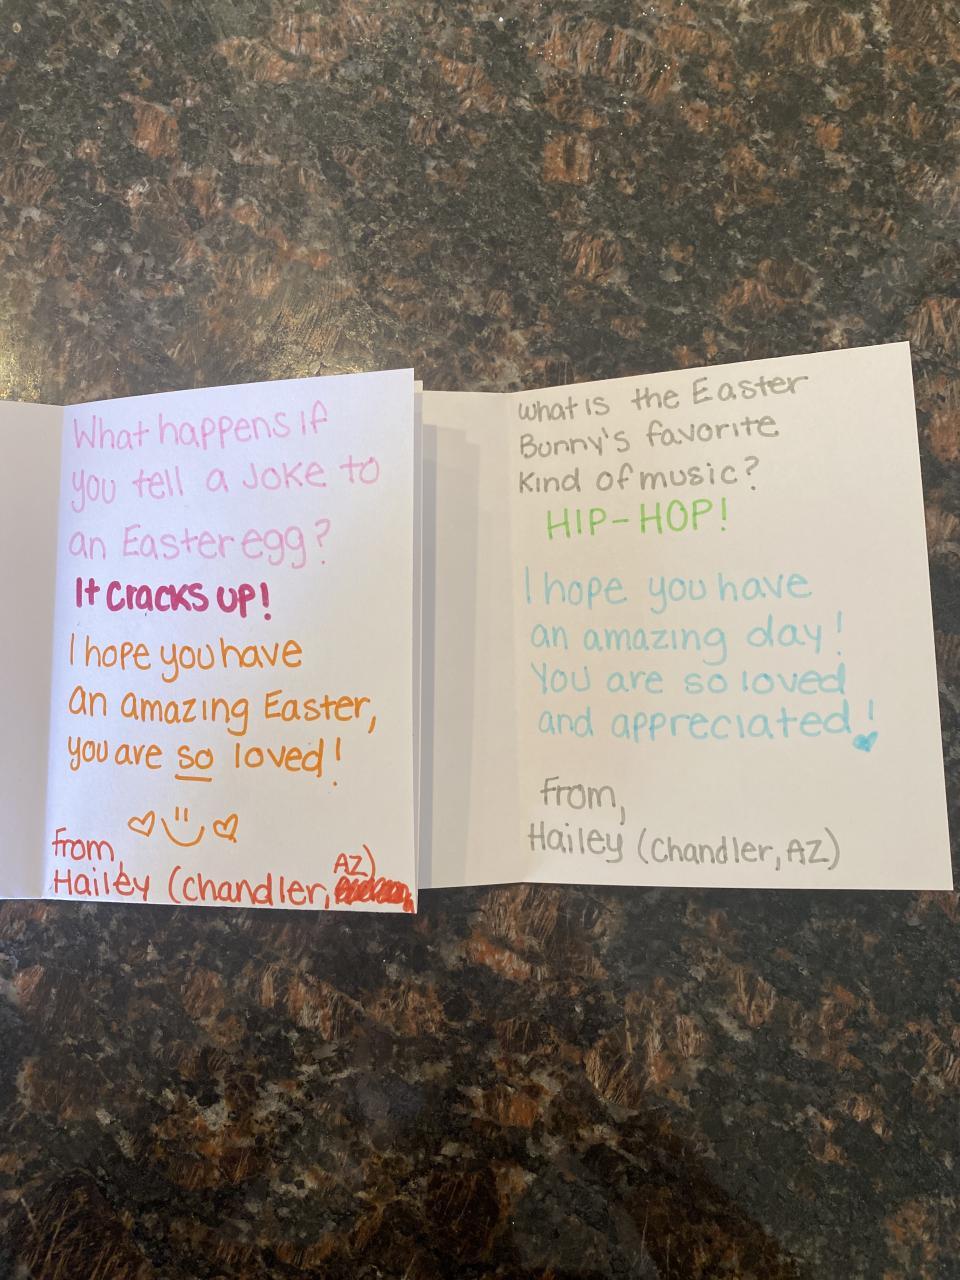 What happens if
you tell a Joke to
an Easter egg?
It cracks up!
I hope you have
an amazing Easter,
you are so loved!
From,
Hailey (Chandler, AZ)
What is the Easter
Bunny's favorite
Kind of music?
HIP-HOP!
I hope you have
an amazing day!
You are so loved
and appreciated!
From,
Hailey (Chandler, AZ)